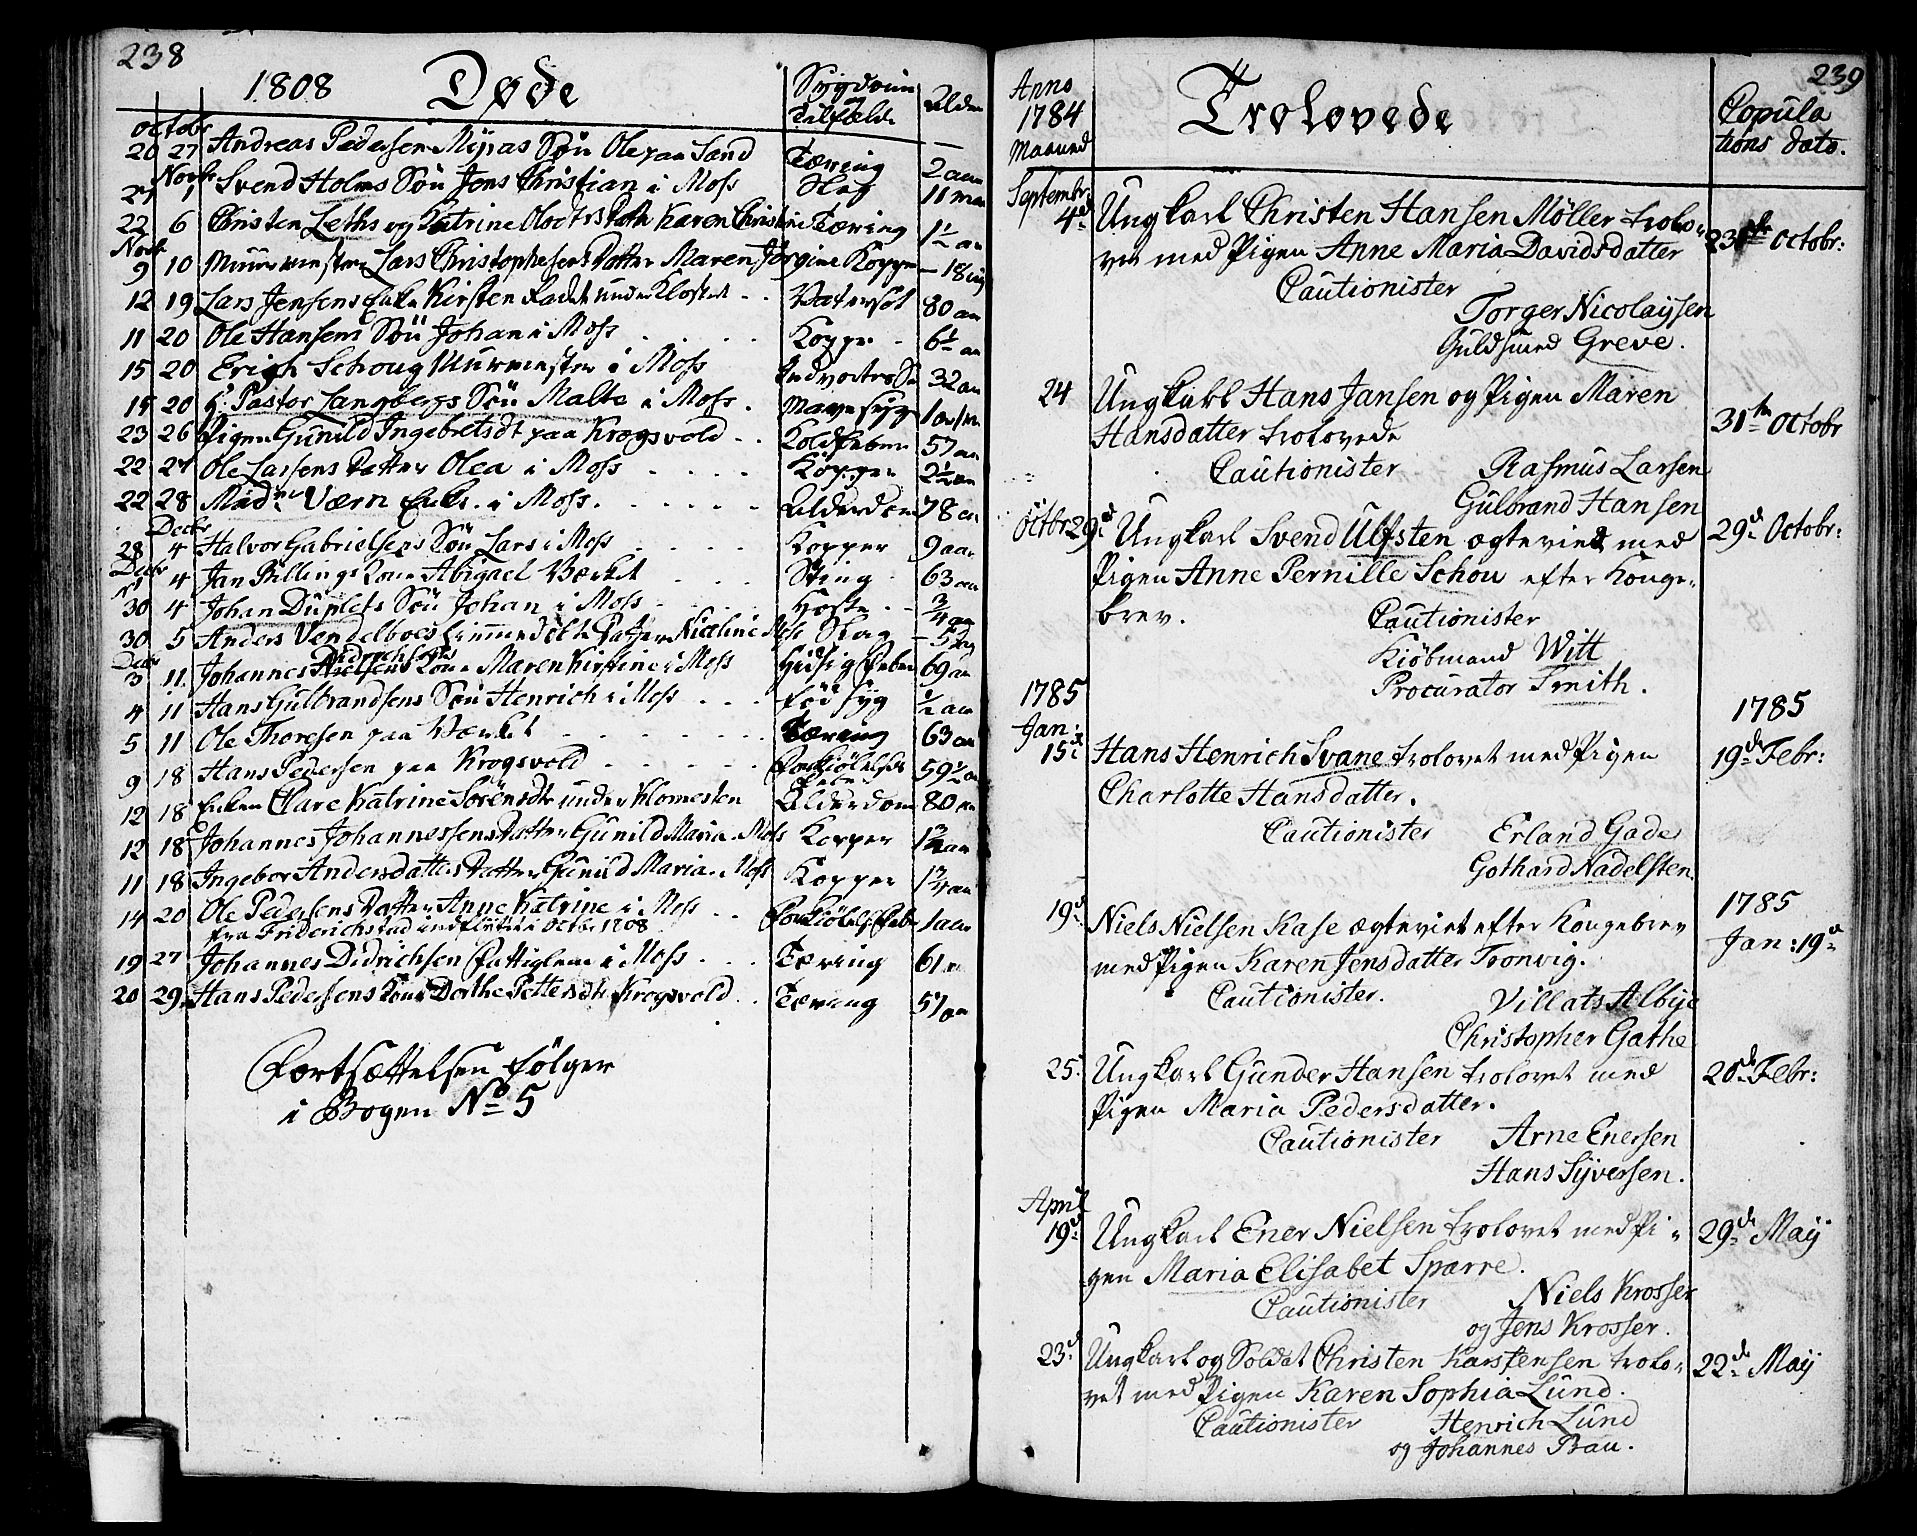 238
1808 Døde
Sygdom
Tilfælde
Alder
Octobr
20 27 Andreas Pedersen Myras Søn Ole paa Sand Tæring 2 aar
Novbr
27 1 Svend Holms Søn Jens Christian i Moss Slag 11 maan
22 6 Christen Leths og Katrine Olsdtrs Datter Karen Christine Tæring 1½ aar
Novbr
9 10 Muurmester Lars Christophersens Datter Maren Jørgine Kopper 18 ug
12 19 Lars Jensens Enke Kirsten Ladet under Klostret Vatersot 80 aar
11 20 Ole Hansens Søn Johan i Moss Kopper 6½ aar
15 20 Erich Schoug Muurmester i Moss Indvortes 32 aar
15 20 Hr Pastor Langbergs Søn Malte i Moss. Mavesyge 1
23 26 Pigen Gunild Ingebretsdt paa Krogsvold Koldfeber 57 aar
22 27 Ole Larsens Datter Olea i Moss Kopper 2½ aar
22 28 Mad. Værn Enke. i Moss. Alderdom 78 aar
Decbr
28 4 Halvor Gabrielsens Søn Lars i Moss Kopper 9 aar
Decbr
4 Jan Billings Kone Abigael Værket Sting 63 aar
30 4 Johan Duplets Søn Johan i Moss Hoste ¾ aar
30 5 Anders Vendelboes hiemmedøbte Datter Nicoline Moss Slag 5 dag
Decbr
Didrichsens
3 11 Johannes Nielsens Kone Maren Kirstine i Moss Hidsig Feber 69 aar
4 11 Hans Gulbrandsens Søn Henrich i Moss Fød syg ½ aar
5 11 Ole Thoresen paa Værket Tæring 63 aar
9 18 Hans Pedersen paa Krogsvold Forkiølelses Feber 59½ aar
12 18 Enken Clare Katrine Sørensdtr under Klomesten Alderdom 80 aar
12 18 Johannes Johannessens Datter Gunild Maria Moss Kopper 1½ aar
11 18 Ingebor Andersdatters Datter Gunild Maria Moss Kopper 1¾ aar
14 20 Ole Pedersens Datter Anne Katrine i Moss Forkiølels Feber 1 aar
fra Friderichstad indflyttet i Octbr 1808
19 27 Johannes Didrichsen Fattiglem i Moss Tæring 61
20 29 Hans Pedersens Kone Dorthe Pettersdtr Krogsvold Tæring 57 aar
Fortsættelsen følger
i Bogen No 5
239
Anno
1784
Maaned
Trolovede
Copula
tions dato.
Septembr
4de Ungkarl Christen Hansen Möller trolo= 23de Octobr:
vet med Pigen Anne Maria Davidsdatter
Cautionister
Torger Nicolaysen
Guldsmed Greve.
24 Ungkarl Hans Jansen og Pigen Maren
Hansdatter trolovede 31te Octobr
Cautionister Rasmus Larsen
Gulbrand Hansen
Octbr 29d Ungkarl Svend Ulfsten ægteviet med 29d Octobr:
Pigen Anne Pernille Schou efter Konge=
brev.
Cautionister
Kiöbmand Witt
Procurator Smith.
1785
Jan: 1785
15d Hans Henrich Svane trolovet med Pigen 19de Febr:
Charlotte Hansdatter.
Cautionister Erland Gade
Gothard Nadelsten.
1785
19d Niels Nielsen Kase ægteviet efter Kongebrev Jan: 19d
med Pigen Karen Jensdatter Tronvig.
Cautionister. Villats Albye
Christopher Gathe
25. Ungkarl Gunder Hansen trolovet med 20de Febr:
Pigen Maria Pedersdatter.
Cautionister Arne Enersen
Hans Syversen.
April
19d Ungkarl Ener Nielsen trolovet med Pi= 29de Maij
gen Maria Elisabet Sparre.
Cautionister Niels Krosser
og Jens Krosser.
23d Ungkarl og Soldat Christen Karstensen trolo= 22de Maij
vet med Pigen Karen Sophia Lund.
Cautionister Henrich Lund
og Johannes Brau.